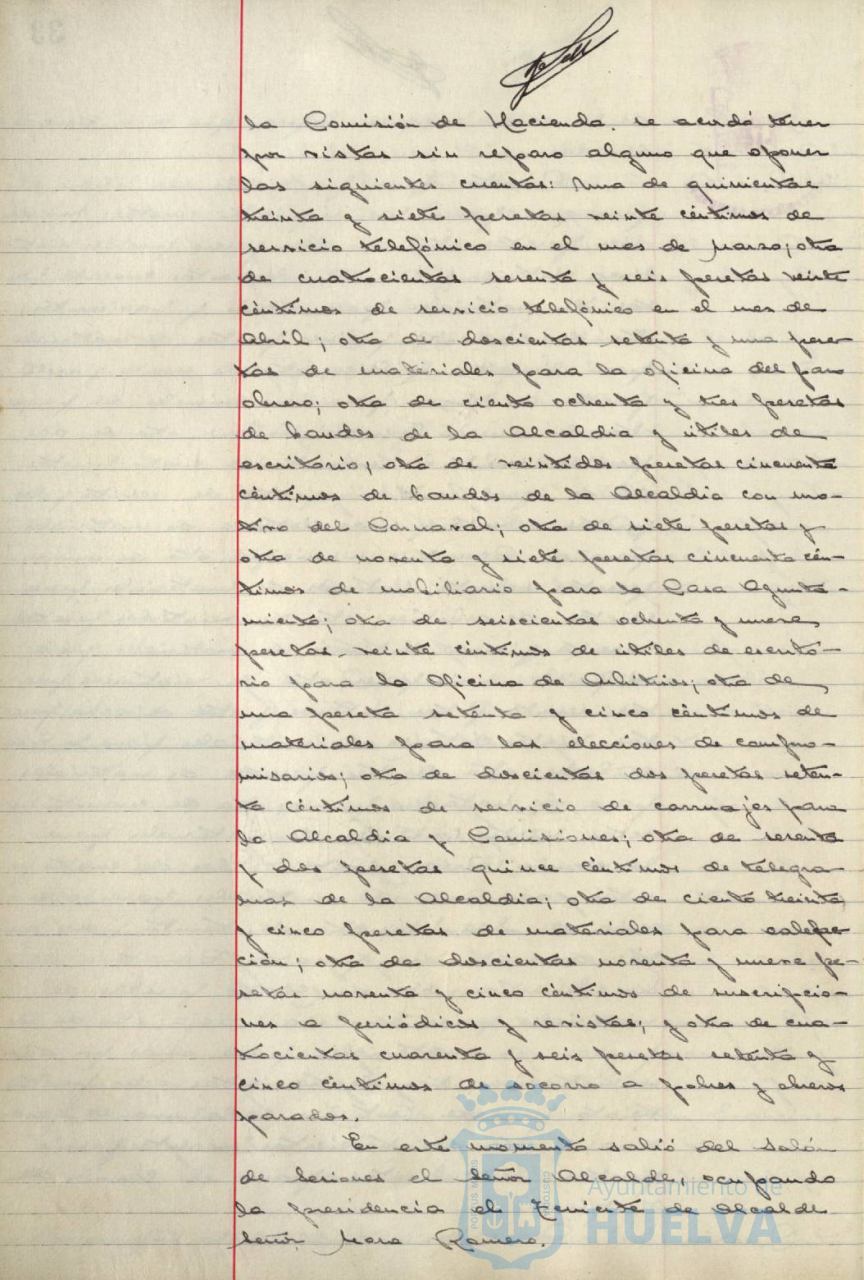 la Comisión de Hacienda. se acordó tener
por vistas sin reparo alguno que oponer
las siguientes cuentas: una de quinientas
treinta y siete pesetas veinte céntimos de
servicio telefónico en el mes de Marzo; otra
de cuatrocientas sesenta y seis pesetas veinte
céntimos de servicio telefónico en el mes de
Abril; otra de doscientas setenta y una pese-
tas de materiales para la oficina del paro
obrero; otra de ciento ochenta y tres pesetas
de bandos de la Alcaldia y útiles de
escritorio; otra de veintidos pesetas cincuenta
céntimos de bandos de la Alcaldia con mo-
tivo del Carnaval; otra de siete pesetas y
otra de noventa y siete pesetas cincuenta cén-
timos de mobiliario para la Casa Ayunta-
miento; otra de seiscientas ochenta y nueve
pesetas veinte céntimos de útiles de escrito-
rio para la Oficina de Arbitrios; otra de
una peseta setenta y cinco céntimos de
materiales para las elecciones de compro-
misarios; otra de doscientas dos pesetas seten-
ta céntimos de servicio de carruajes para
la Alcaldia y Comisiones; otra de sesenta
y dos pesetas quince céntimos de telegra-
mas de la Alcaldia; otra de ciento treinta
y cinco pesetas de materiales para calefac-
ción; otra de doscientas noventa y nueve pe-
setas noventa y cinco céntimos de suscripcio-
nes a periódicos y revistas; y otra de cua-
trocientas cuarenta y seis pesetas setenta y
cinco céntimos de socorro a pobres y obreros
parados.
En este momento salió del Salón
de Sesiones el Señor Alcalde, ocupando
la presidencia el Teniente de Alcalde
Señor Mora Romero.
Ayuntamiento de
HUELVA